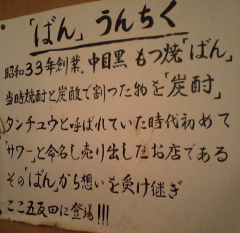 「ばん」うんちく
昭和33年創業、中目黒 もつ焼「ばん」
当時焼酎と炭酸で割つた物を「炭酎」
タンチュウと呼ばれていた時代初めて
「サワー」と命名し売り出したお店である
その「ばん」から想いを受け継ぎ
ここ五反田に登場!!!